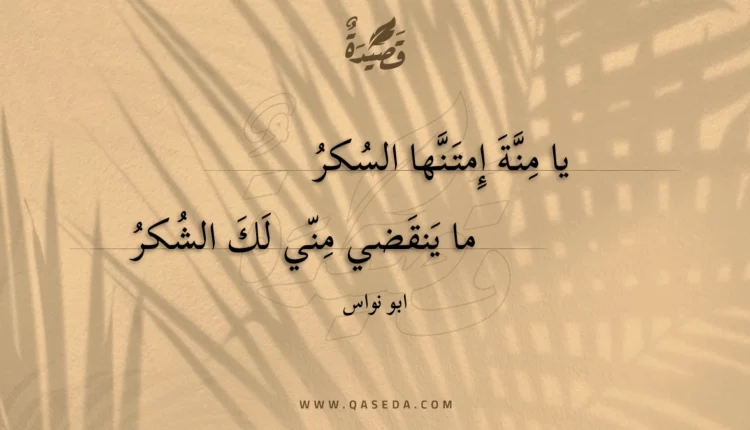 قَصِيْدَةٌ
يا مِنَّةَ إِمتَنَّها السُكرُ
ما يَنقَضي مِنّي لَكَ الشُكرُ
ابو نواس
WWW.QASEDA.COM